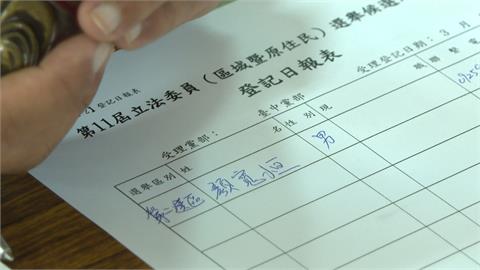 2】登記日報表
第11屆立法委員(區域暨原住民)選舉候選
登記日報表
受理黨部: 臺中黨部 受理登記日期: 3 月
選舉區別 姓名 性別 現
第二選區 顏寬恒 男